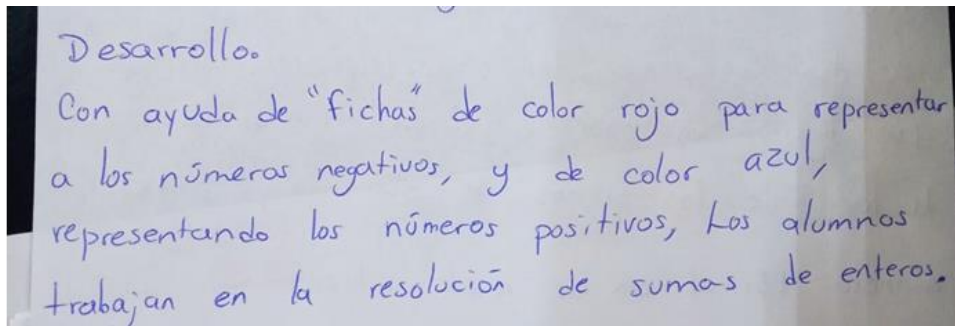 Desarrollo.
Con ayuda de "fichas" de color rojo para representar
a los números negativos, y de color azul,
representando los números positivos, Los alumnos
trabajan en la resolución de sumas de enteros.